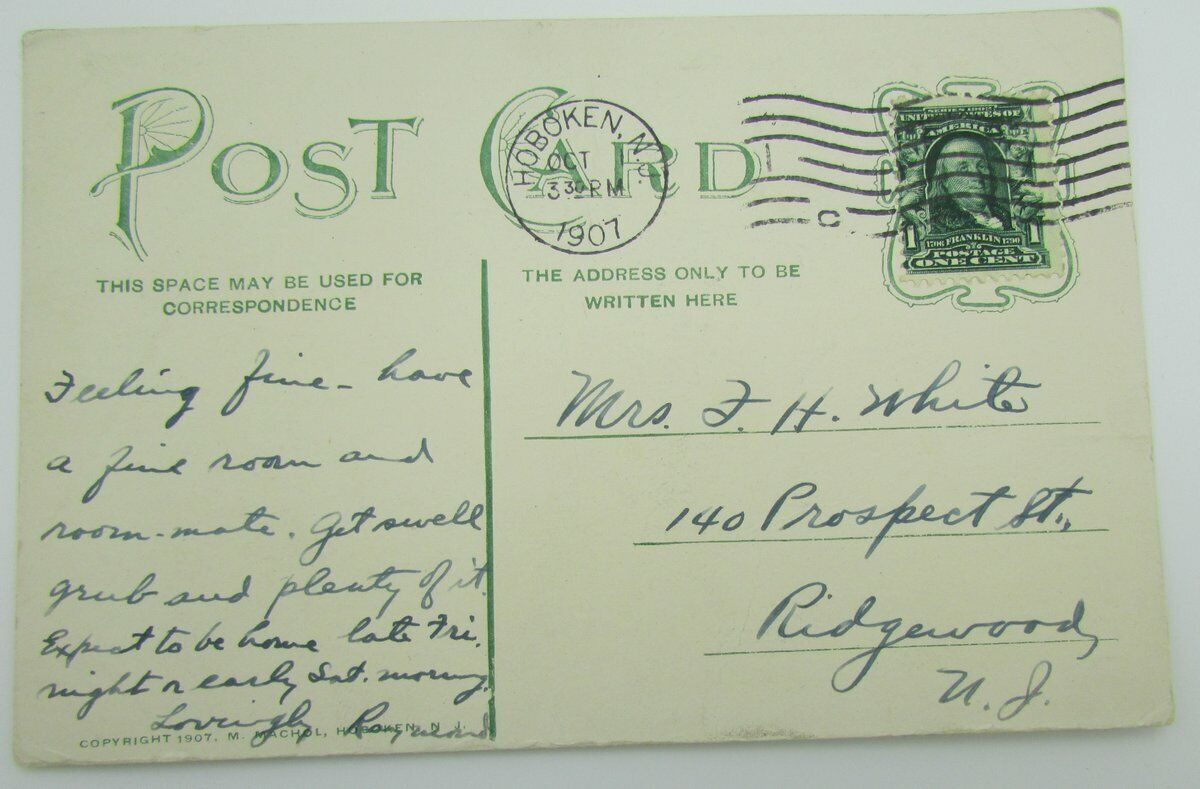 POST CARD
HOBOKEN, N.J.
OCT
3 30 PM
1907
C
SERIES 1902
UNITED STATES OF
AMERICA
1 1706 FRANKLIN 1790 1
POSTAGE
ONE CENT
THIS SPACE MAY BE USED FOR
CORRESPONDENCE
THE ADDRESS ONLY TO BE
WRITTEN HERE
Feeling fine - have
a fine room and
room-mate. Get swell
grub and plenty of it.
Expect to be home late Fri.
night or early Sat. morning.
Lovingly Raymond
COPYRIGHT 1907, M. MACHOL, HOBOKEN, N. J.
Mrs. F. H. White
140 Prospect St.,
Ridgewood,
N. J.